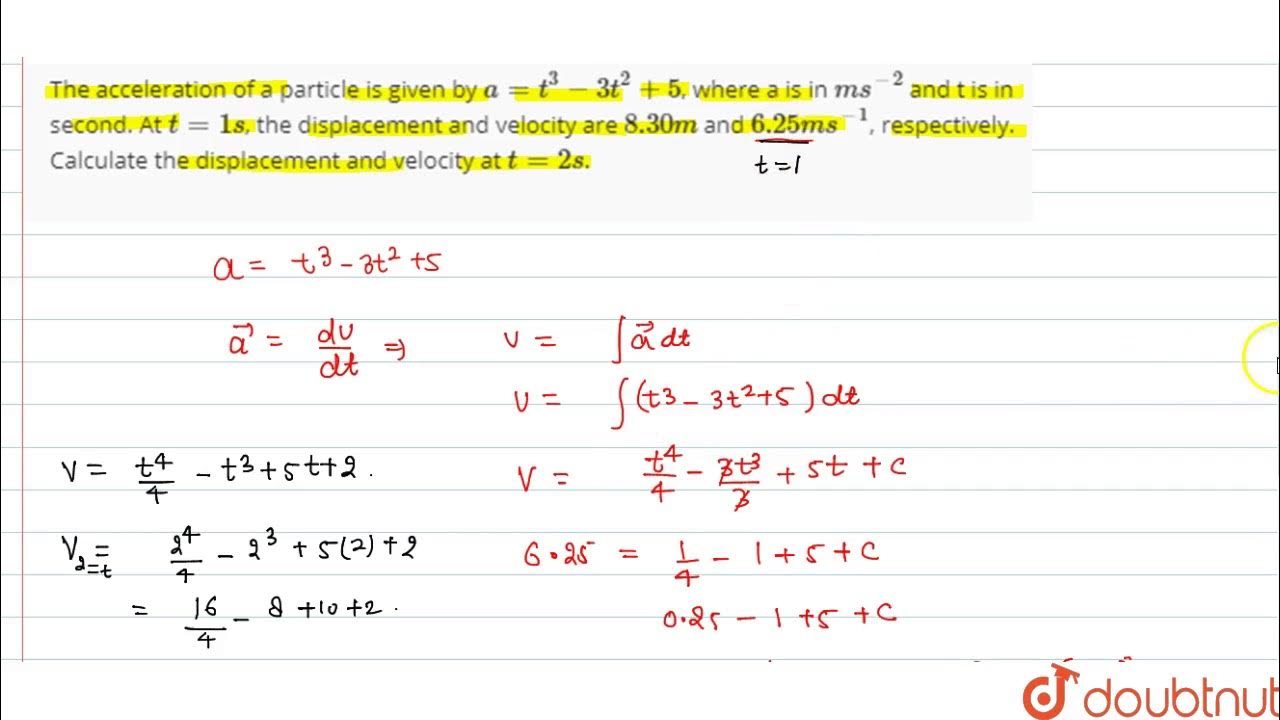 The acceleration of a particle is given by a = t³ − 3t² + 5, where a is in ms⁻² and t is in
second. At t = 1s, the displacement and velocity are 8.30m and 6.25ms⁻¹, respectively.
Calculate the displacement and velocity at t = 2s.
t = 1
a = t³ - 3t² + 5
a⃗ = dv/dt ⇒
v = ∫ a⃗ dt
v = ∫ (t³ - 3t² + 5) dt
V = t⁴/4 - t³ + 5t + 2 .
V = t⁴/4 - 3t³/3 + 5t + C
V₂₌ₜ = 2⁴/4 - 2³ + 5(2) + 2
6.25 = 1/4 - 1 + 5 + C
= 16/4 - 8 + 10 + 2 .
0.25 - 1 + 5 + C
doubtnut